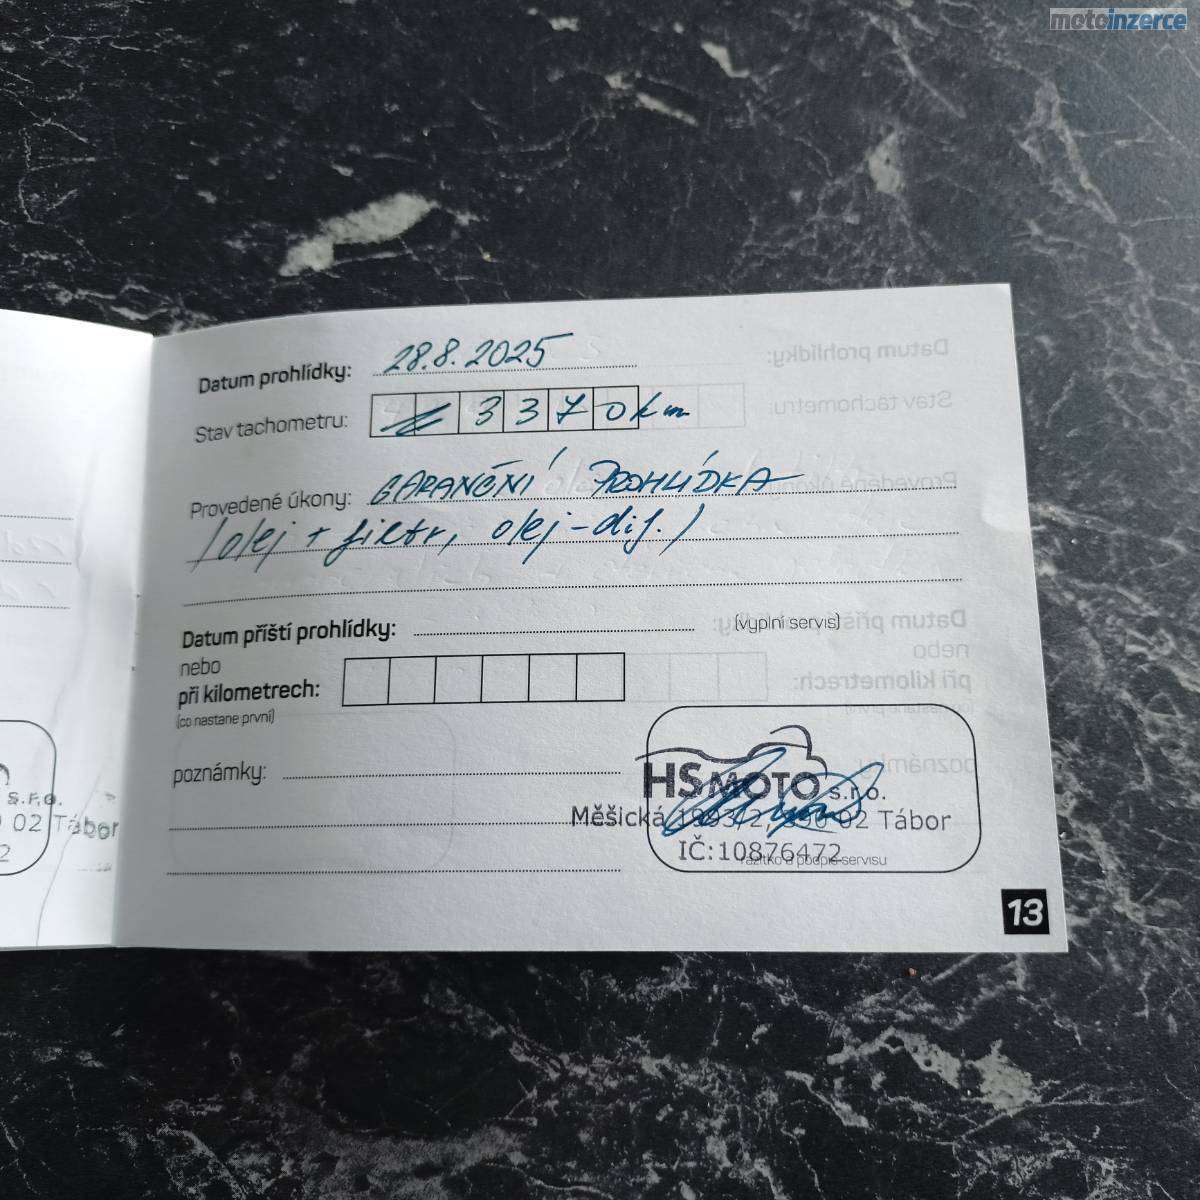 motoinzerce
Datum prohlídky: 28.8.2025
Stav tachometru: 3370 km
Provedené úkony: GARANČNÍ PROHLÍDKA
(olej + filtr, olej-dif.)
Datum příští prohlídky: (vyplní servis)
nebo
při kilometrech:
(co nastane první)
poznámky:
HS MOTO s.r.o.
Měšická 1993/2, 390 02 Tábor
IČ:10876472
razítko a podpis servisu
13
s.r.o.
02 Tábor
2